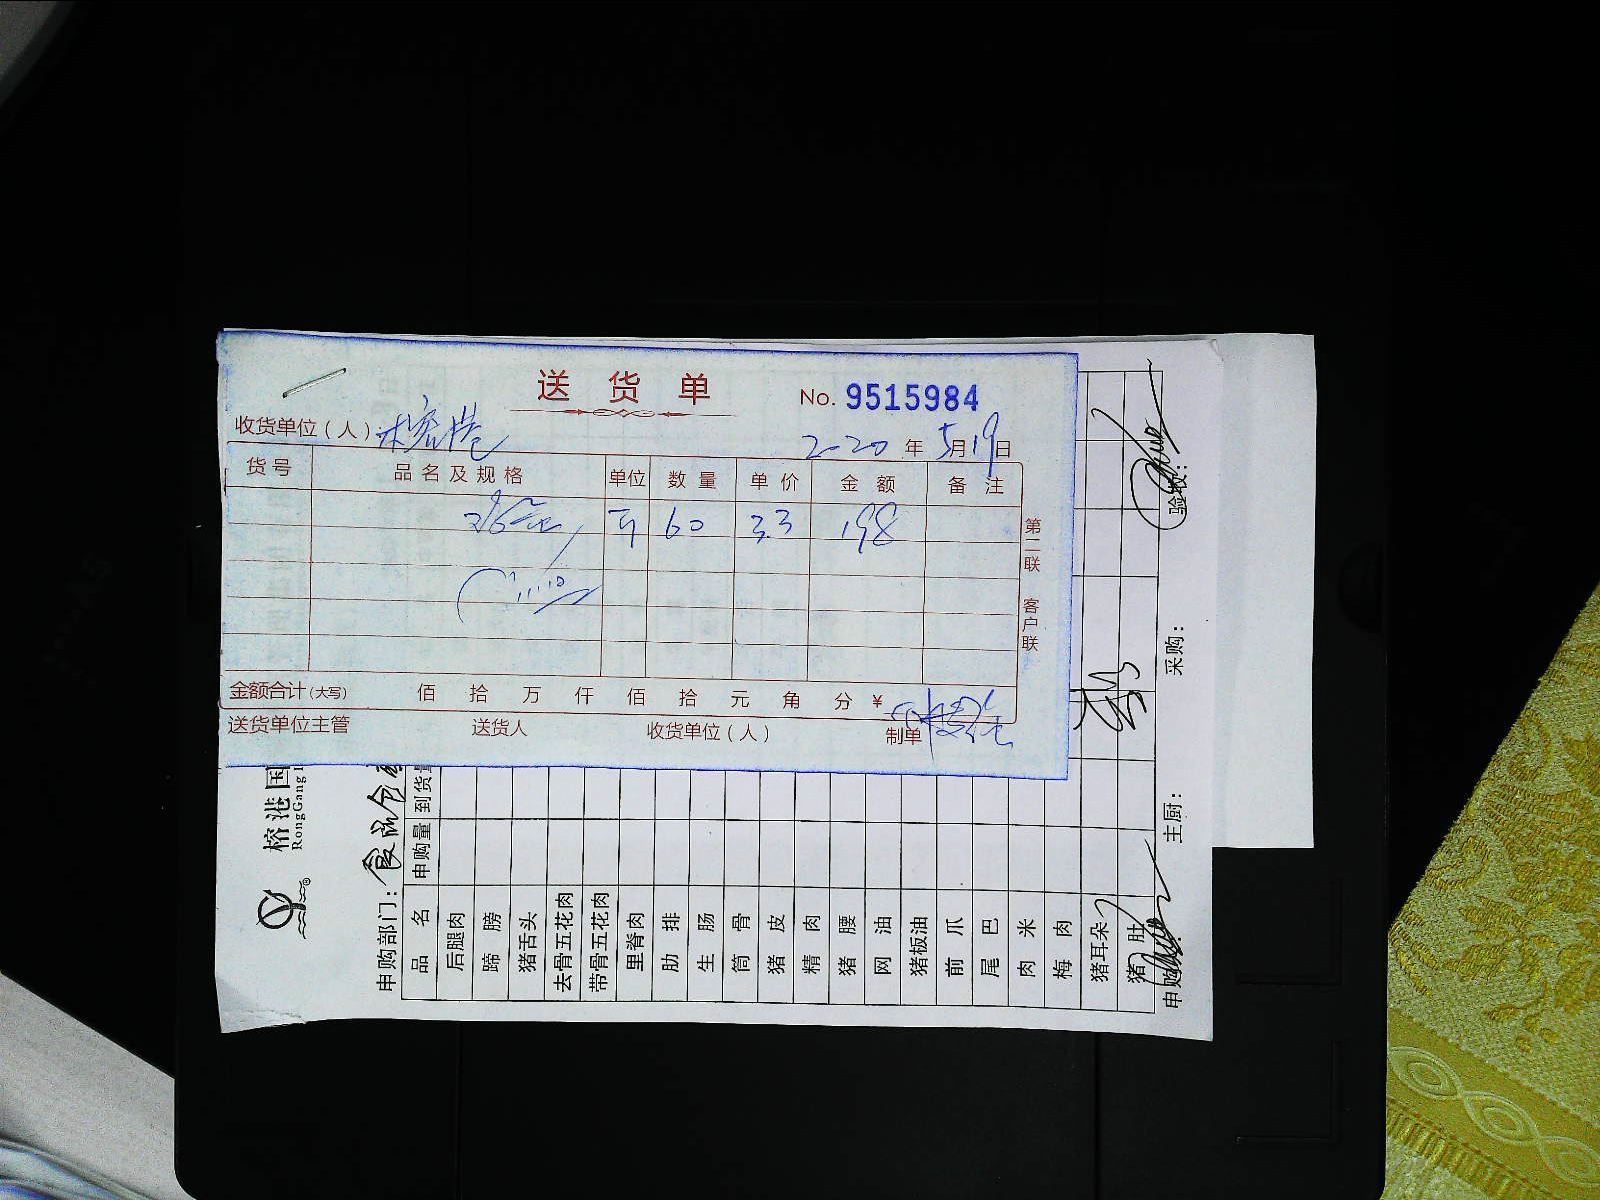 送货单
No. 9515984
收货单位（人）：榕港
2020 年 5月19日
货号 品名及规格 单位 数量 单价 金额 备注
斤 60 3.3 198
第二联 客户联
金额合计(大写) 佰 拾 万 仟 佰 拾 元 角 分 ¥
送货单位主管 送货人 收货单位（人） 制单
榕港国
RongGang
申购部门：食品仓
品名 申购量 到货量
后腿肉
蹄膀
猪舌头
去骨五花肉
带骨五花肉
里脊肉
肋排
生肠
筒骨
猪皮
精肉
猪腰
网油
猪板油
前爪
尾巴
肉米
梅肉
猪耳朵
猪肚
申购 主厨： 采购： 验收：